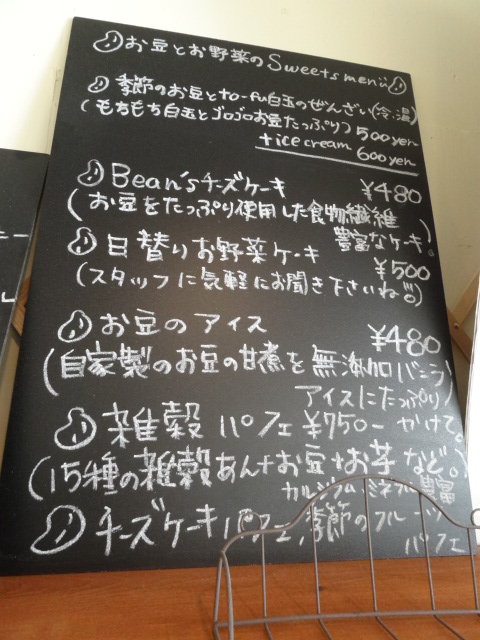 お豆とお野菜のSweets menu
季節のお豆とto-fu白玉のぜんざい(冷・温)
(もちもち白玉とゴロゴロお豆たっぷり) 500yen
+ice cream 600yen
Bean'sチーズケーキ ¥480
(お豆をたっぷり使用した食物繊維
豊富なケーキ!)
日替りお野菜ケーキ ¥500
(スタッフに気軽にお聞き下さいね)
お豆のアイス ¥480
(自家製のお豆の甘煮を無添加バニラ
アイスにたっぷり
かけて。)
雑穀パフェ ¥750-
(15種の雑穀あん+お豆+お芋など。)
カルシウム ミネラル 豊富
チーズケーキパフェ,季節のフルーツ
パフェ
ー
ル